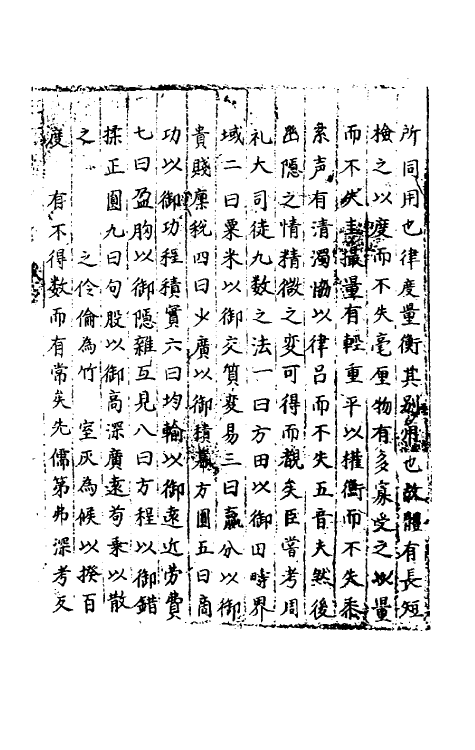 所同用也律度量衡其別用也故體有長短
檢之以度而不失毫厘物有多寡受之以量
而不失圭撮量有輕重平以權衡而不失黍
絫声有清濁協以律呂而不失五音夫然後
幽隱之情精微之变可得而觀矣臣嘗考周
礼大司徒九数之法一曰方田以御田畴界
域二曰粟米以御交質变易三曰羸分以御
貴賤廩稅四曰少廣以御積冪方圓五曰商
功以御功程積實六曰均輸以御遠近勞費
七曰盈朒以御隱雜互見八曰方程以御錯
揉正圓九曰句股以御高深廣遠苟乗以散
之 之伶倫為竹 室灰為候以揆百
度 有不得数而有常矣先儒第弗深考反